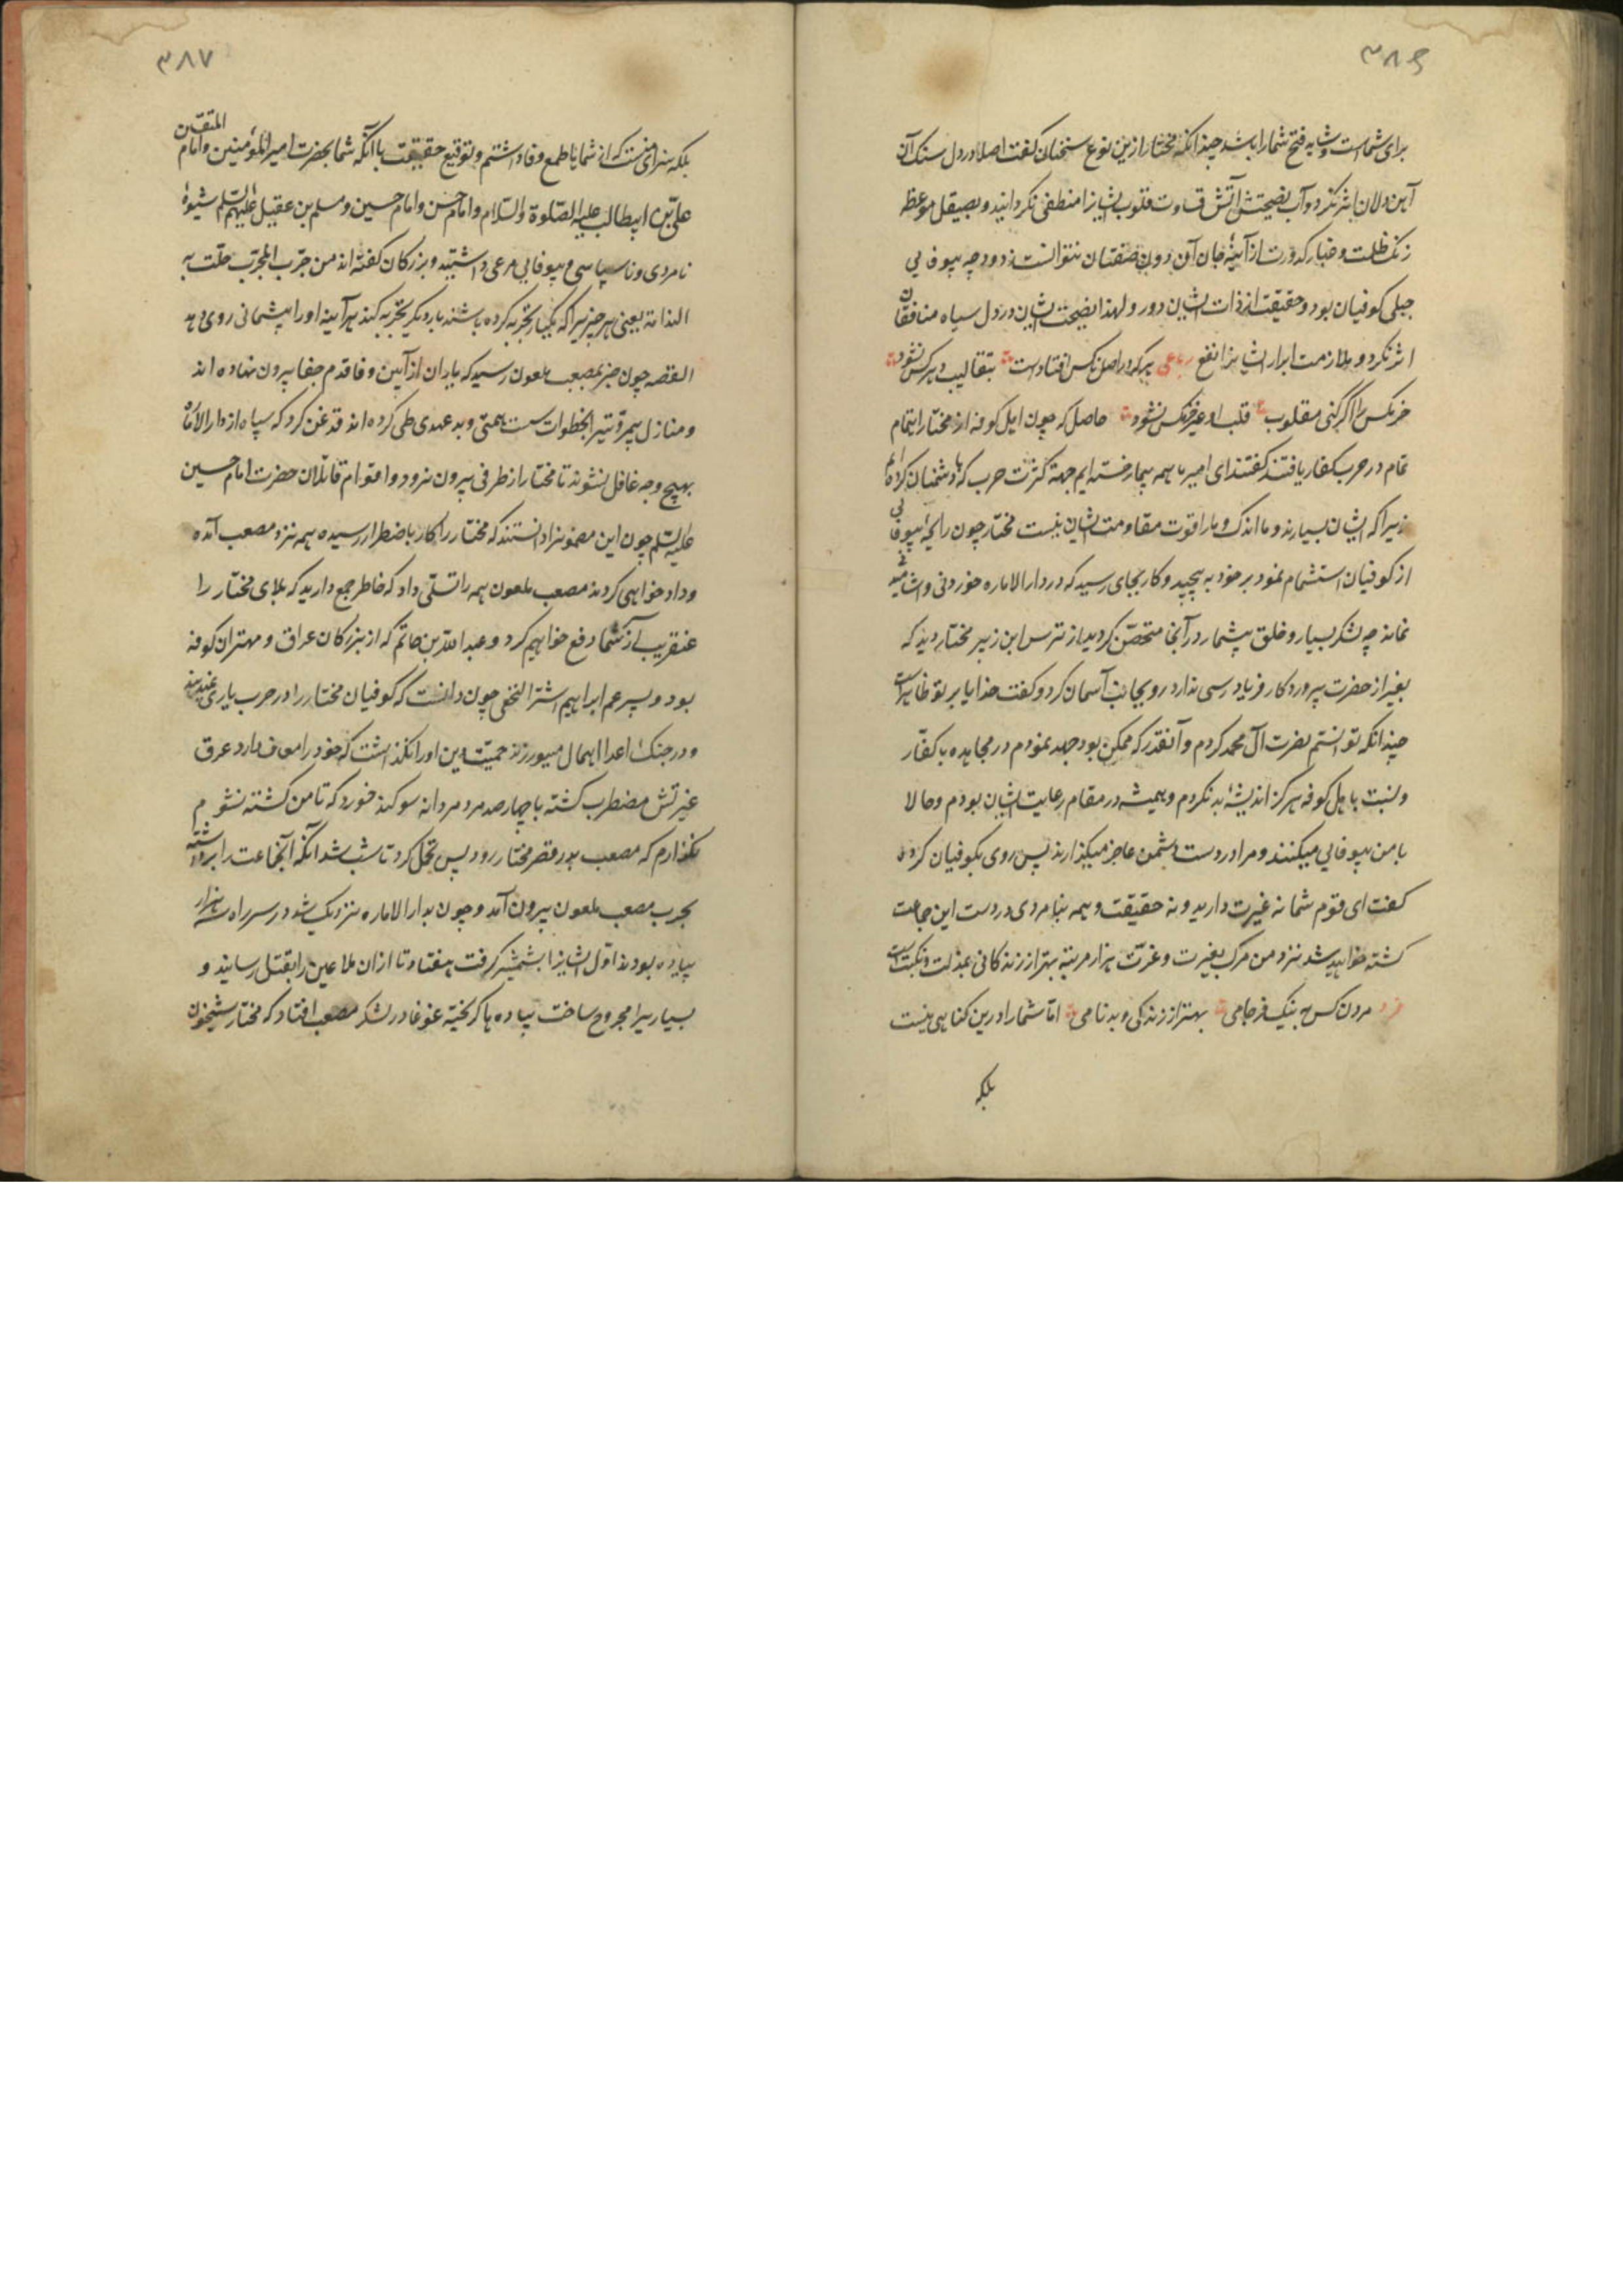 ۳۸۶
برای شماست و شاید فتح شما را باشد چندانکه مختار ازین نوع سخنان گفت اصلا در دل سنک آن
آهن دلان اثر نکرد و آب نصیحتش آتش قساوت قلوب ایشانرا منطفی نکردانید و بصیقل موعظه
زنک ظلمت و غبار کدورت از آینهٔ جان آن دون صفتان نتوانست زدود چه بیوفایی
جبلی کوفیان بود و حقیقت از ذات ایشان دور و لهذا نصیحت ایشان در دل سیاه منافقان
اثر نکرد و ملازمت ابرار ایشانرا نفع رباعی هر که در اصل ناکس افتادست بتقالیب دهر کس نشود
خرمکس را اگر کنی مقلوب قلب او غیر خرمکس نشود حاصل که چون اهل کوفه از مختار اهتمام
تمام در حرب کفار یافتند گفتند ای امیر ما همه بیمار خسته ایم جهة کثرت حرب که با دشمنان کرده ایم
زیرا که ایشان بسیارند و ما اندک و ما را قوت مقاومت ایشان نیست مختار چون رایحهٔ بیوفایی
از کوفیان استشمام نمود بر خود به پیچید و کار بجای رسید که در دار الاماره خوردنی و اشامیدنی
نماند چه لشکر بسیار و خلق بیشمار در آنجا متحصّن کردیده از ترس ابن زبیر مختار دید که
بغیر از حضرت پروردکار فریاد رسی ندارد رو بجانب آسمان کرد و گفت خدایا بر تو ظاهر است
چندانکه توانستم نصرت آل محمد کردم و آنقدر که ممکن بود جهد نمودم در مجاهده با کفّار
و نسبت باهل کوفه هرکز اندیشهٔ بد نکردم و همیشه در مقام رعایت ایشان بودم و حالا
با من بیوفایی میکنند و مرا در دست دشمن عاجز میکذارند پس روی بکوفیان کرده
گفت ای قوم شما نه غیرت دارید و نه حقیقت و همه بنامردی در دست این جماعت
کشته خواهید شد نزد من مرک بغیرت و عزّت هزار مرتبه بهتر از زندکانی بمذلت و نکبت است
فرد مردن کس به نیک فرجامی بهتر از زندکی و بدنامی امّا شما را درین کناهی نیست
بلکه
۳۸۷
بلکه سزای منست که از شماها طمع وفا داشتم و توقیع حقیقت با آنکه شما بحضرت امیر المؤمنین و امام المتقین
علی بن ابیطالب علیه الصّلوة والسّلام و امام حسن و امام حسین و مسلم بن عقیل علیهم السّلم شیوهٔ
نامردی و ناسپاسی و بیوفایی مرعی داشتید و بزرکان گفته اند من جرّب المجرّب حلّت به
الندامة یعنی هر چیزیرا که یکبار تجربه کرده باشند بار دیگر تجربه کنند هر آینه او را پشیمانی روی دهد
القصه چون خبر بمصعب ملعون رسید که یاران از آیین وفا قدم جفا بیرون نهاده اند
و منازل بیمروّتی را بخطوات سست همّتی و بدعهدی طی کرده اند قدغن کرد که سپاه از دار الاماره
بهیچ وجه غافل نشوند تا مختار از طرفی بیرون نرود و اقوام قاتلان حضرت امام حسین
علیه السّلم چون این مضمونرا دانستند که مختار را کار باضطرار رسیده همه نزد مصعب آمده
و داد خواهی کردند مصعب ملعون همه را تسلّی داد که خاطر جمع دارید که بلای مختار را
عنقریب از شما دفع خواهیم کرد و عبد الله بن حاتم که از بزرکان عراق و مهتران کوفه
بود و پسر عم ابراهیم اشتر النخعی چون دانست که کوفیان مختار را در حرب یاری نمیدهند
و در جنک اعدا اهمال میورزند حمیّت دین او را نکذاشت که خود را معاف دارد عرق
غیرتش مضطرب کشته با چهارصد مرد مردانه سوکند خورد که تا من کشته نشوم
نکذارم که مصعب بدر قصر مختار رود پس تحمّل کرد تا شب شد آنکه آنجماعت را برداشته
بحرب مصعب ملعون بیرون آمد و چون بدار الاماره نزدیک شد در سر راه سه هزار
پیاده بودند اوّل ایشانرا بشمشیر کرفت هفتاد تا از ان ملاعین را بقتل رسانید و
بسیاریرا مجروح ساخت پیاده ها کریخته غوغا در لشکر مصعب افتاد که مختار شبیخون